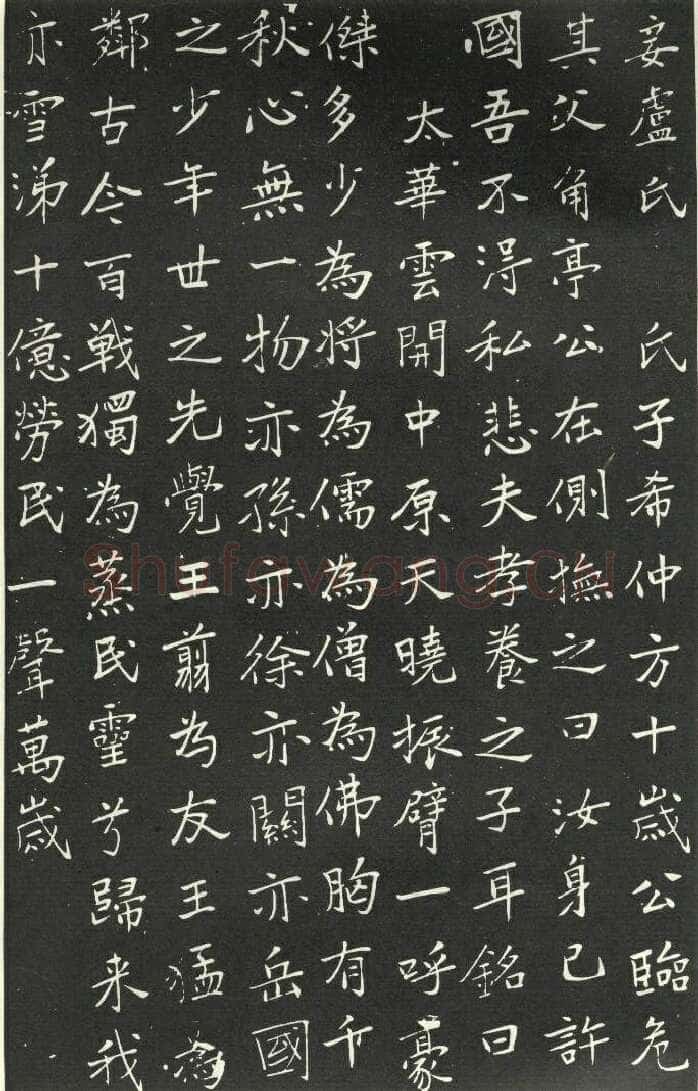 妾盧氏　氏子希仲方十歲公臨危
其父角亭公在側撫之曰汝身已許
國吾不淂私悲夫孝養之子耳銘曰
太華雲開中原天曉振臂一呼豪
傑多少為將為儒為僧為佛胸有千
秋心無一物亦孫亦徐亦關亦岳國
之少年世之先覺王翦为友王猛為
鄰古今百戰獨為蒸民靈兮歸来我
亦雪涕十億勞民一聲萬歲
Shufawang.Cn